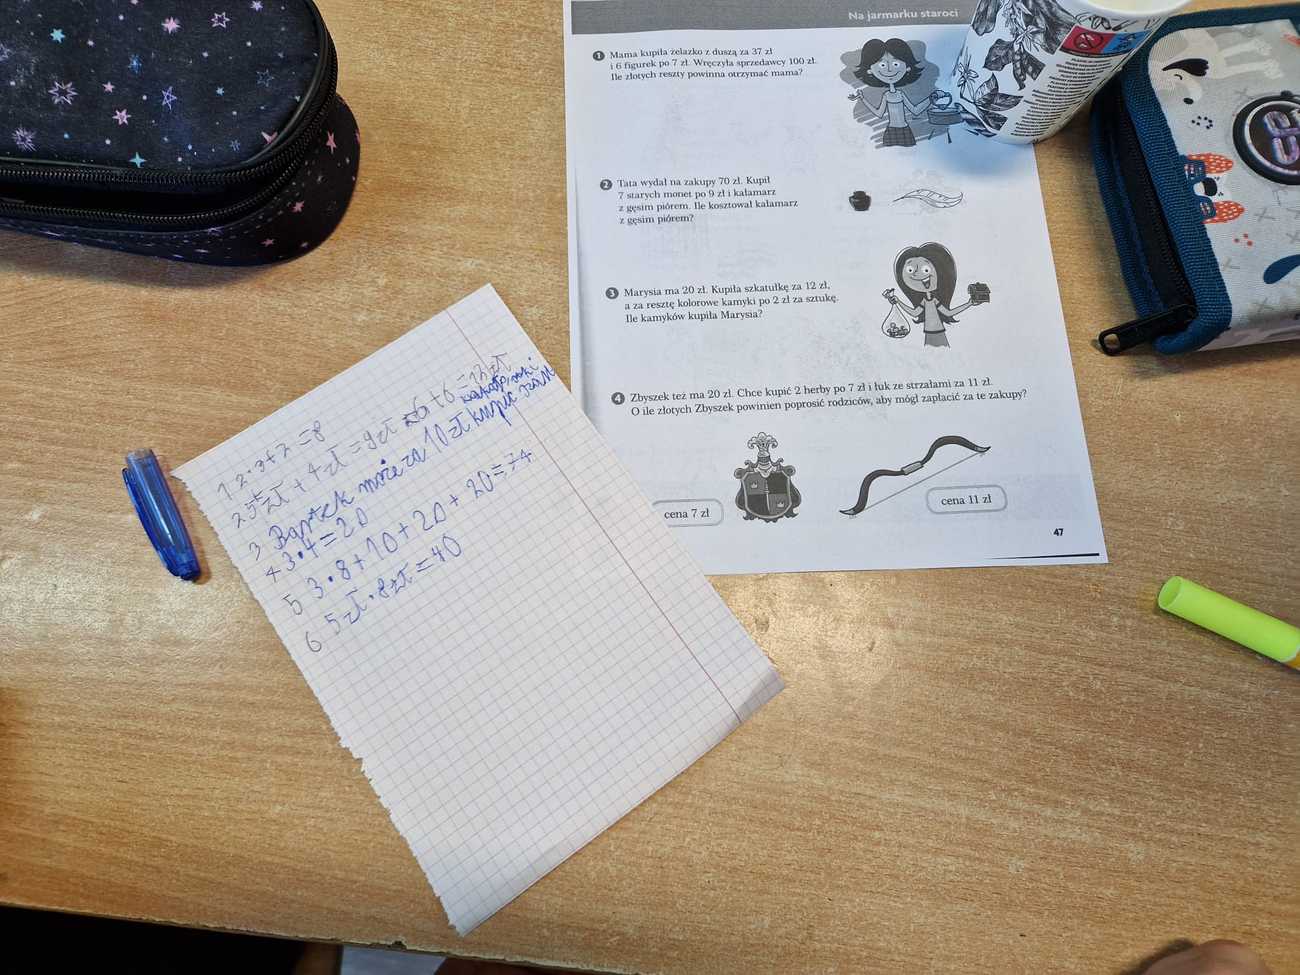 Na jarmarku staroci
1 Mama kupiła żelazko z duszą za 37 zł
i 6 figurek po 7 zł. Wręczyła sprzedawcy 100 zł.
Ile złotych reszty powinna otrzymać mama?
2 Tata wydał na zakupy 70 zł. Kupił
7 starych monet po 9 zł i kałamarz
z gęsim piórem. Ile kosztował kałamarz
z gęsim piórem?
3 Marysia ma 20 zł. Kupiła szkatułkę za 12 zł,
a za resztę kolorowe kamyki po 2 zł za sztukę.
Ile kamyków kupiła Marysia?
4 Zbyszek też ma 20 zł. Chce kupić 2 herby po 7 zł i łuk ze strzałami za 11 zł.
O ile złotych Zbyszek powinien poprosić rodziców, aby mógł zapłacić za te zakupy?
cena 7 zł
cena 11 zł
47
1 2·3+2=8
2 5zł + 4zł = 9zł 6+6=12zł
3 Bartek może za 10zł kupić
4 3·4=20
5 3·8+10+20+20=74
6 5zł·8zł=40